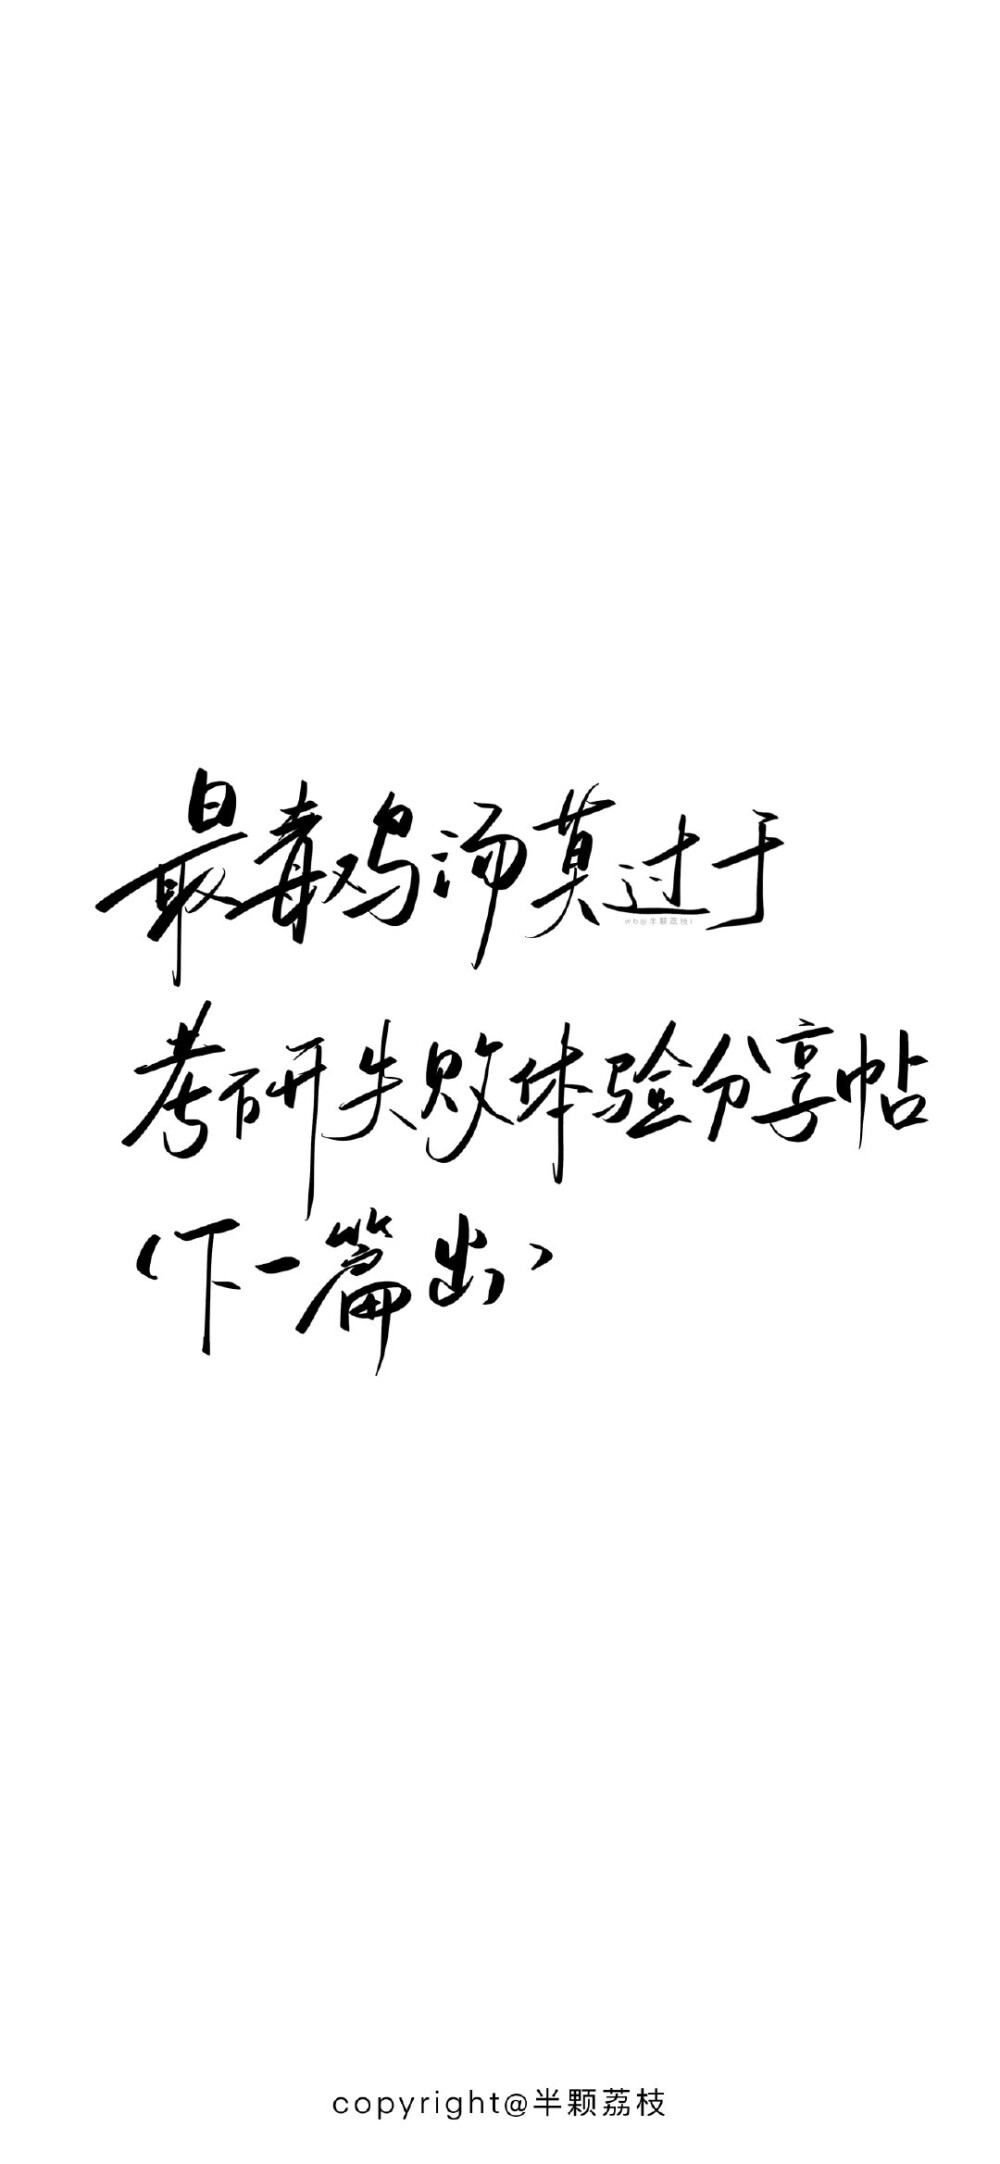 最毒鸡汤莫过于
wb@半颗荔枝r
考研失败体验分享帖
（下一篇出）
copyright@半颗荔枝